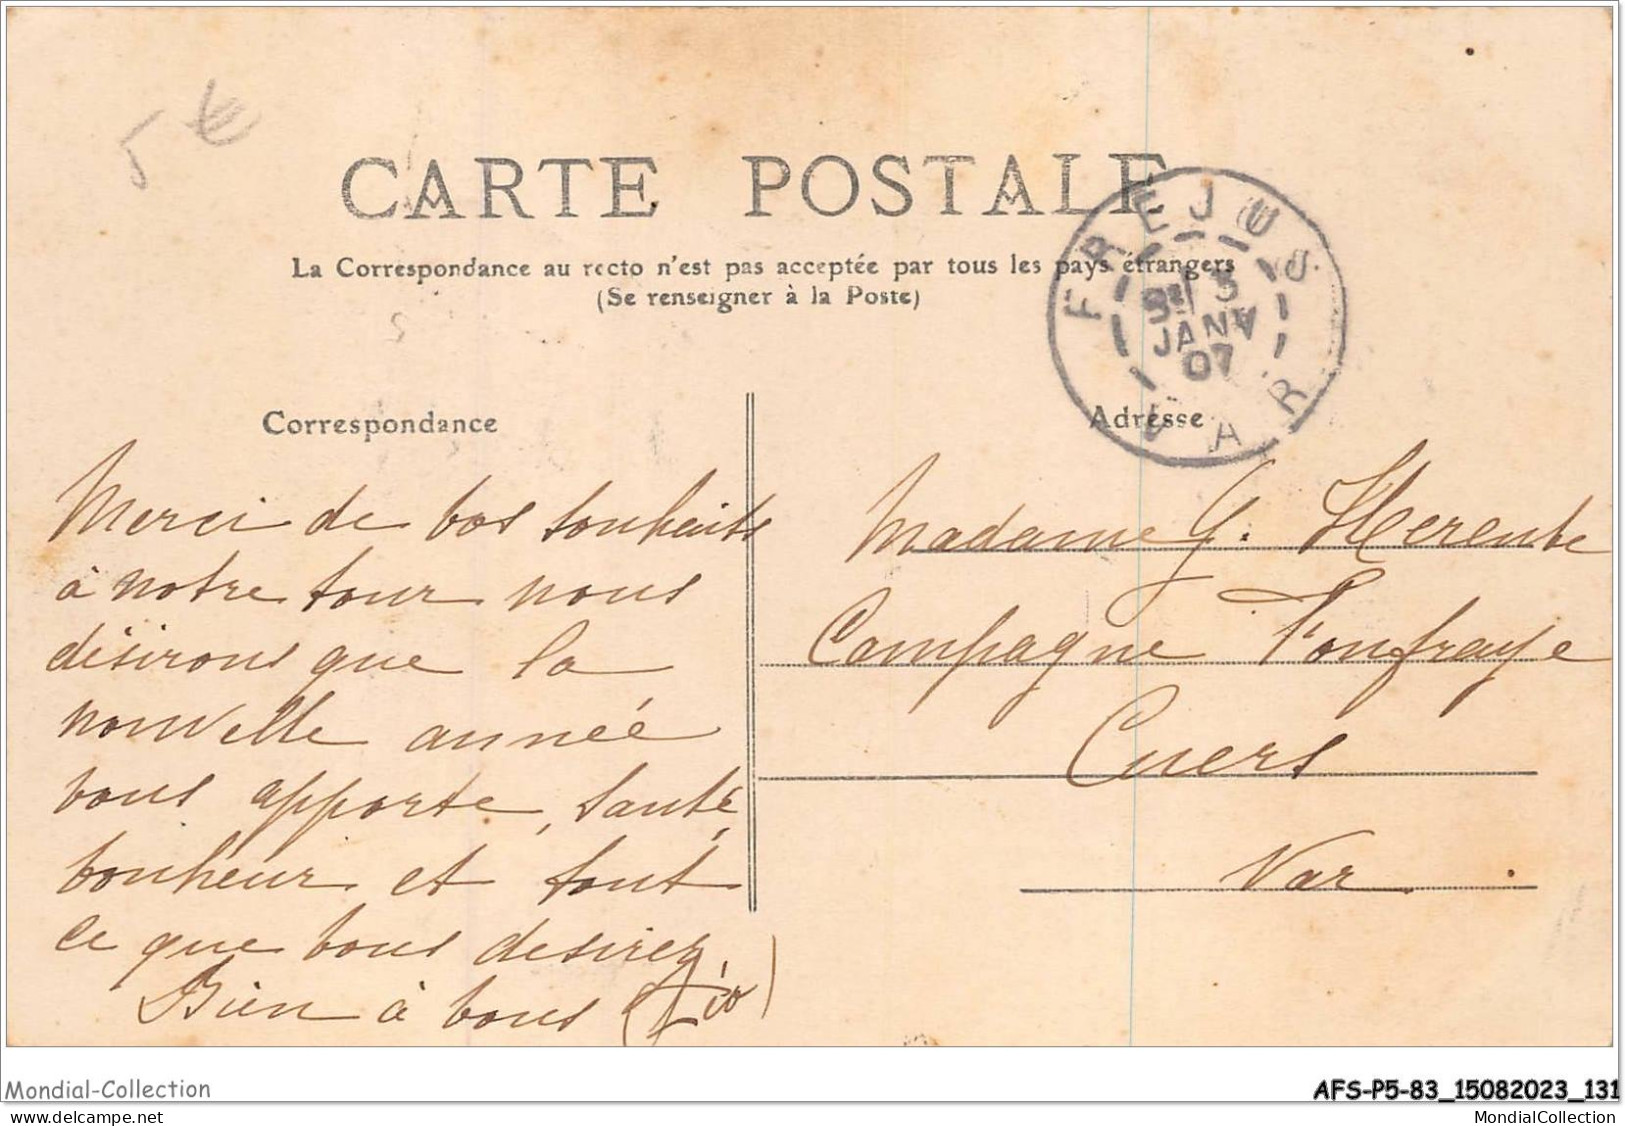 5 €
CARTE POSTALE
La Correspondance au recto n'est pas acceptée par tous les pays étrangers
(Se renseigner à la Poste)
FREJUS
3
JANV
07
VAR
Correspondance
Adresse
Merci de vos souhaits
à notre tour nous
désirons que la
nouvelle année
vous apporte, santé,
bonheur et tout
ce que vous desirez.
Bien à vous
Madame G. Herente
Campagne Ponfraye
Cuers
Var.
Mondial-Collection
AFS-P5-83_15082023_131
MondialCollection